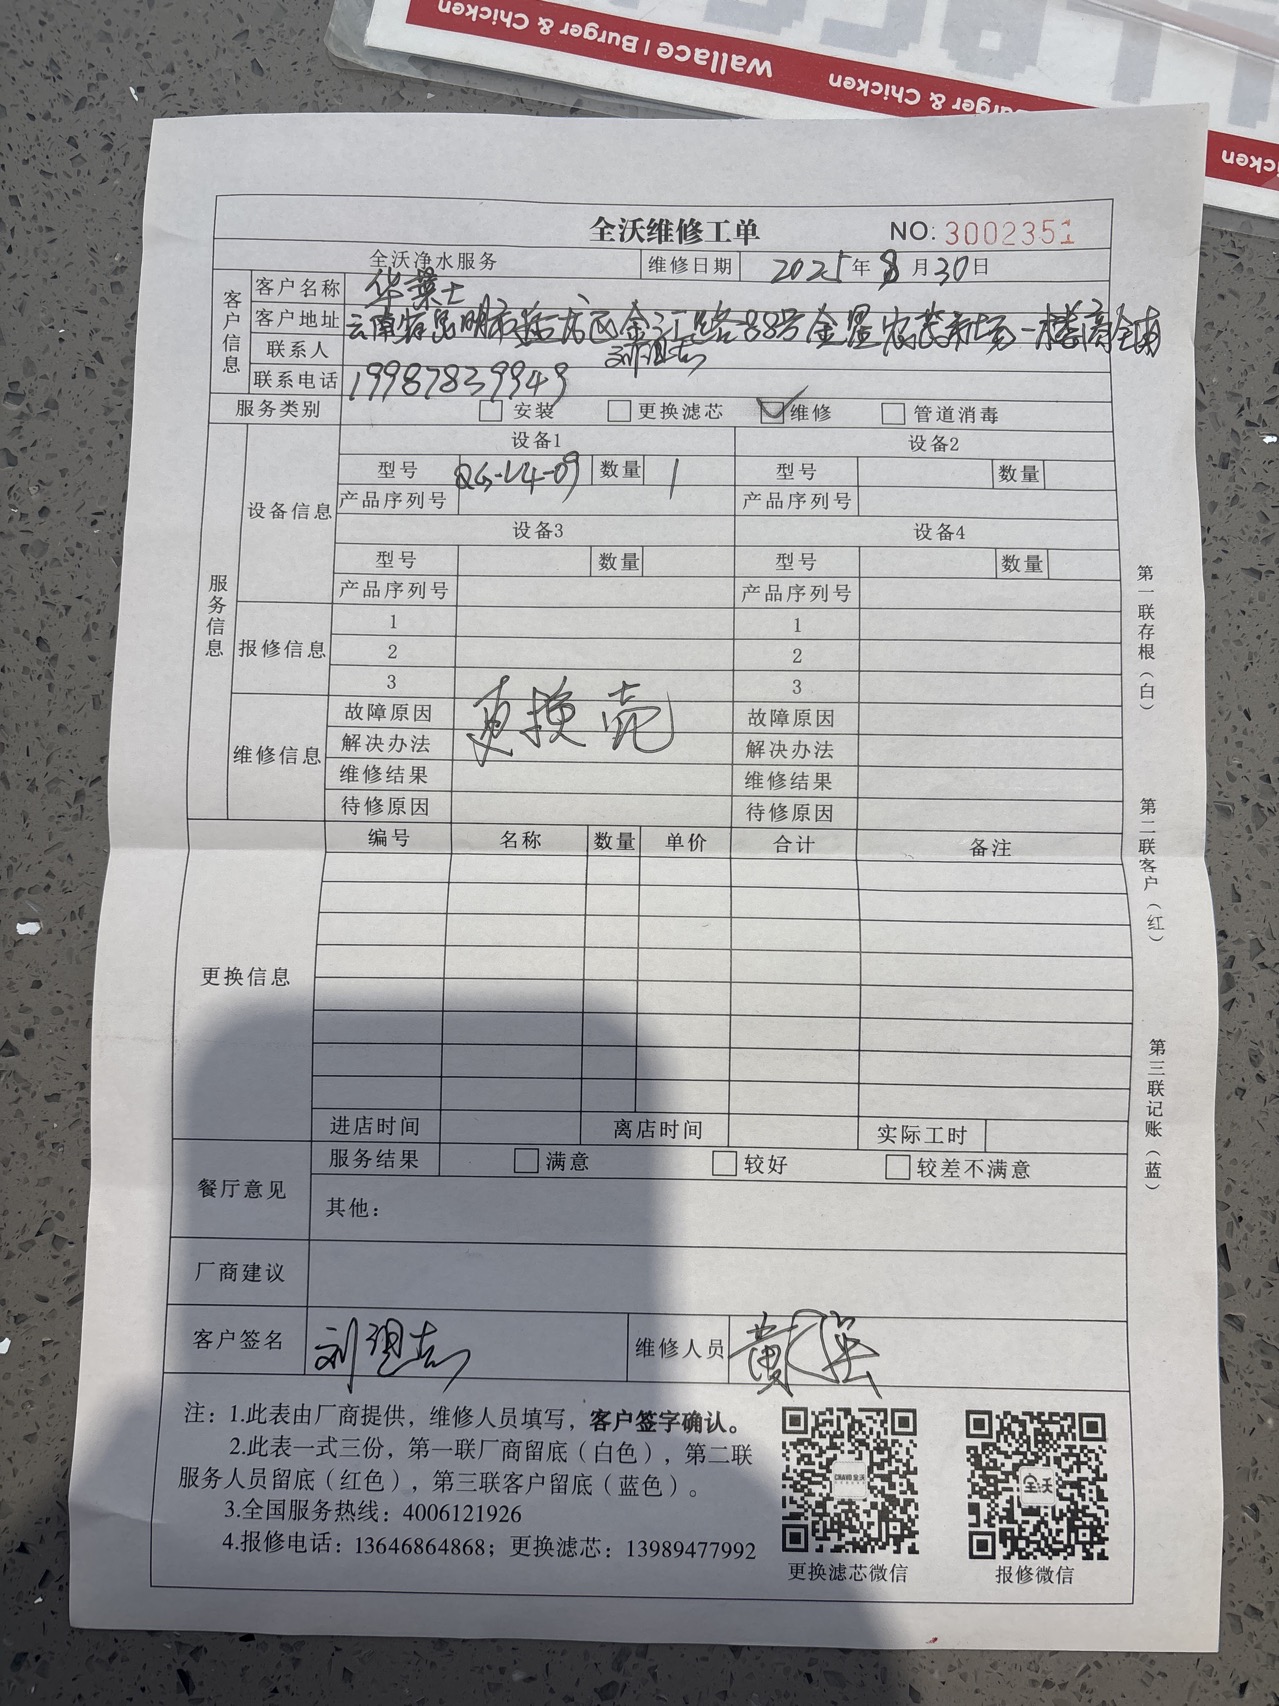 Wallace | Burger & Chicken
Burger & Chicken
全沃维修工单
NO: 3002351
全沃净水服务 维修日期 2025年8月30日
客户信息
客户名称 华莱士
客户地址 云南省昆明市盘龙区金江路88号金星农贸市场一楼商全南
联系人
联系电话 19987839949
服务类别 安装 更换滤芯 维修 管道消毒
服务信息
设备信息
设备1 设备2
型号 QG-V4-09 数量 1 型号 数量
产品序列号 产品序列号
设备3 设备4
型号 数量 型号 数量
产品序列号 产品序列号
报修信息
1 1
2 2
3 3
维修信息
更换壳
故障原因 故障原因
解决办法 解决办法
维修结果 维修结果
待修原因 待修原因
更换信息
编号 名称 数量 单价 合计 备注
进店时间 离店时间 实际工时
餐厅意见
服务结果 满意 较好 较差不满意
其他：
厂商建议
客户签名 维修人员
注：1.此表由厂商提供，维修人员填写，客户签字确认。
2.此表一式三份，第一联厂商留底（白色），第二联
服务人员留底（红色），第三联客户留底（蓝色）。
3.全国服务热线：4006121926
4.报修电话：13646864868；更换滤芯：13989477992
全沃
更换滤芯微信 报修微信
第一联存根（白）
第二联客户（红）
第三联记账（蓝）